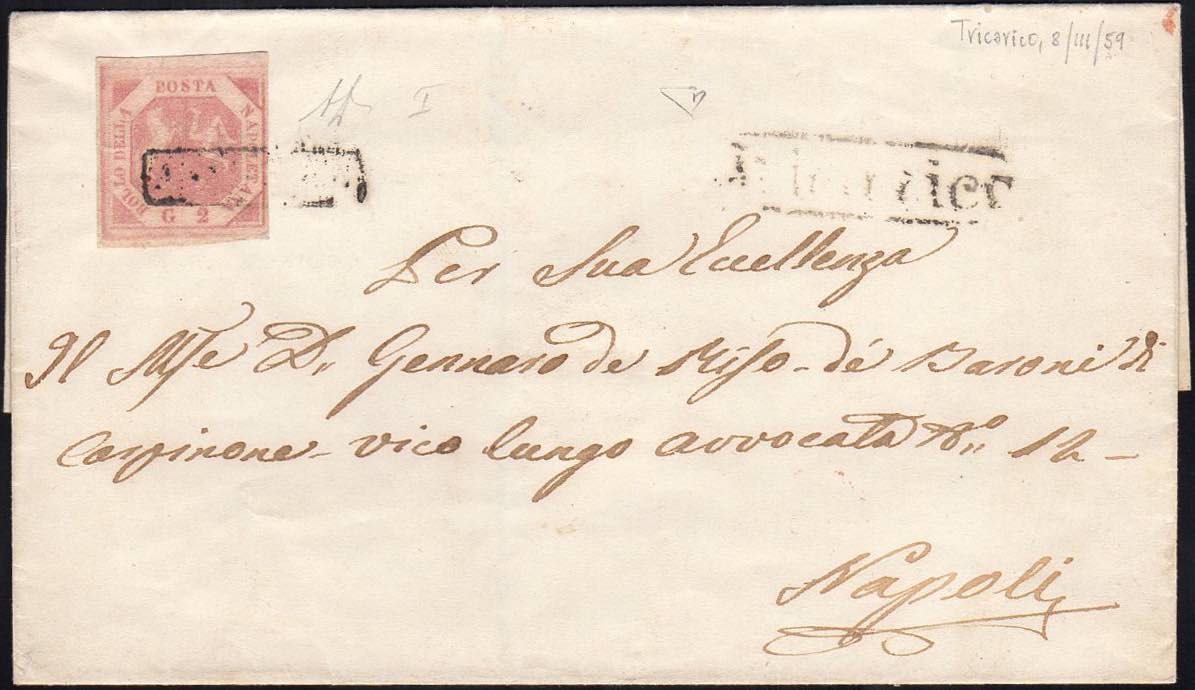 Tricarico, 8/III/59
I
BOLLO DELLA POSTA NAPOLETANA
G 2
Per Sua Eccellenza
Il Mse D. Gennaro de Riso - de' Baroni di
Carpinone - vico lungo avvocata No. 12 -
Napoli